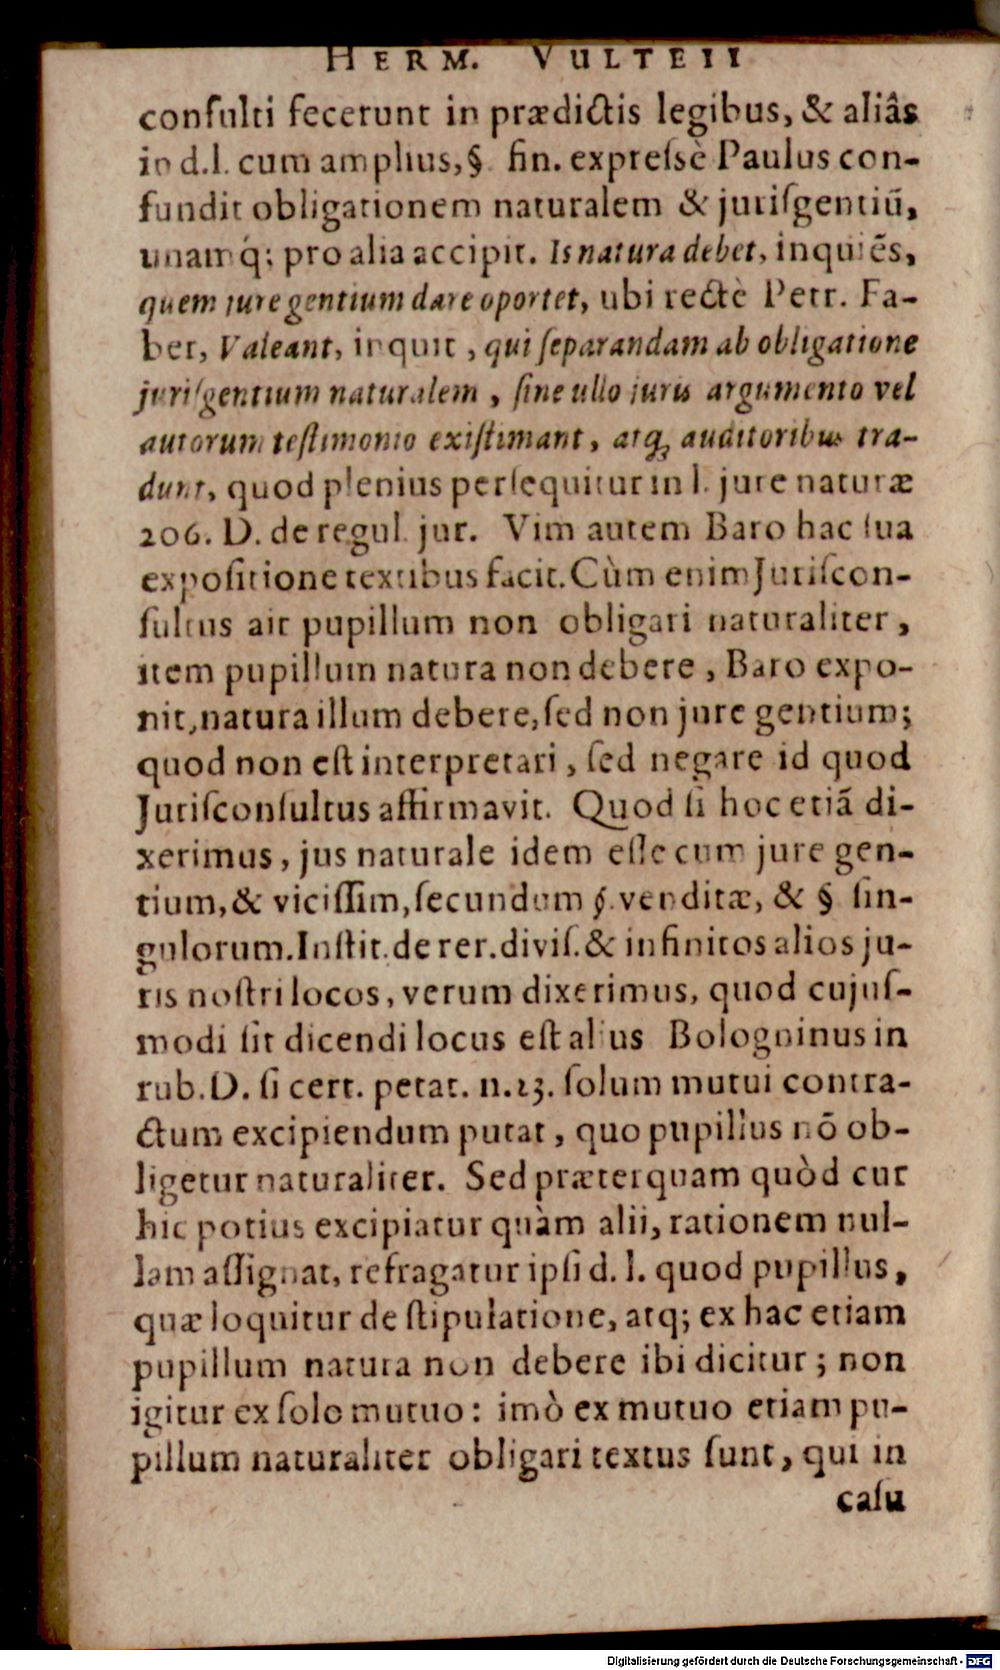 HERM. VULTEII
conſulti fecerunt in prædictis legibus, & aliâs
in d.l. cum amplius, § fin. expreſsè Paulus con-
fundit obligationem naturalem & juriſgentiũ,
unamq́; pro alia accipit. Is natura debet, inquiẽs,
quem jure gentium dare oportet, ubi rectè Petr. Fa-
ber, Valeant, inquit, qui ſeparandam ab obligatione
juriſgentium naturalem, ſine ullo juris argumento vel
autorum teſtimonio exiſtimant, atq; auditoribus tra-
dunt, quod plenius perſequitur in l. jure naturæ
206. D. de regul. jur. Vim autem Baro hac ſua
expoſitione textibus facit. Cùm enim Juriſcon-
ſultus ait pupillum non obligari naturaliter,
item pupillum natura non debere, Baro expo-
nit, natura illum debere, ſed non jure gentium;
quod non eſt interpretari, ſed negare id quod
Juriſconſultus affirmavit. Quod ſi hoc etiã di-
xerimus, jus naturale idem eſſe cum jure gen-
tium, & viciſſim, ſecundum §. venditæ, & § ſin-
gulorum. Inſtit. de rer. diviſ. & infinitos alios ju-
ris noſtri locos, verum dixerimus, quod cujuſ-
modi ſit dicendi locus eſt alius Bologninus in
rub. D. ſi cert. petat. n. 23. ſolum mutui contra-
ctum excipiendum putat, quo pupillus nõ ob-
ligetur naturaliter. Sed præterquam quòd cur
hic potius excipiatur quàm alii, rationem nul-
lam aſſignat, refragatur ipſi d. l. quod pupillus,
quæ loquitur de ſtipulatione, atq; ex hac etiam
pupillum natura non debere ibi dicitur; non
igitur ex ſolo mutuo: imò ex mutuo etiam pu-
pillum naturaliter obligari textus ſunt, qui in
caſu
Digitalisierung gefördert durch die Deutsche Forschungsgemeinschaft - DFG